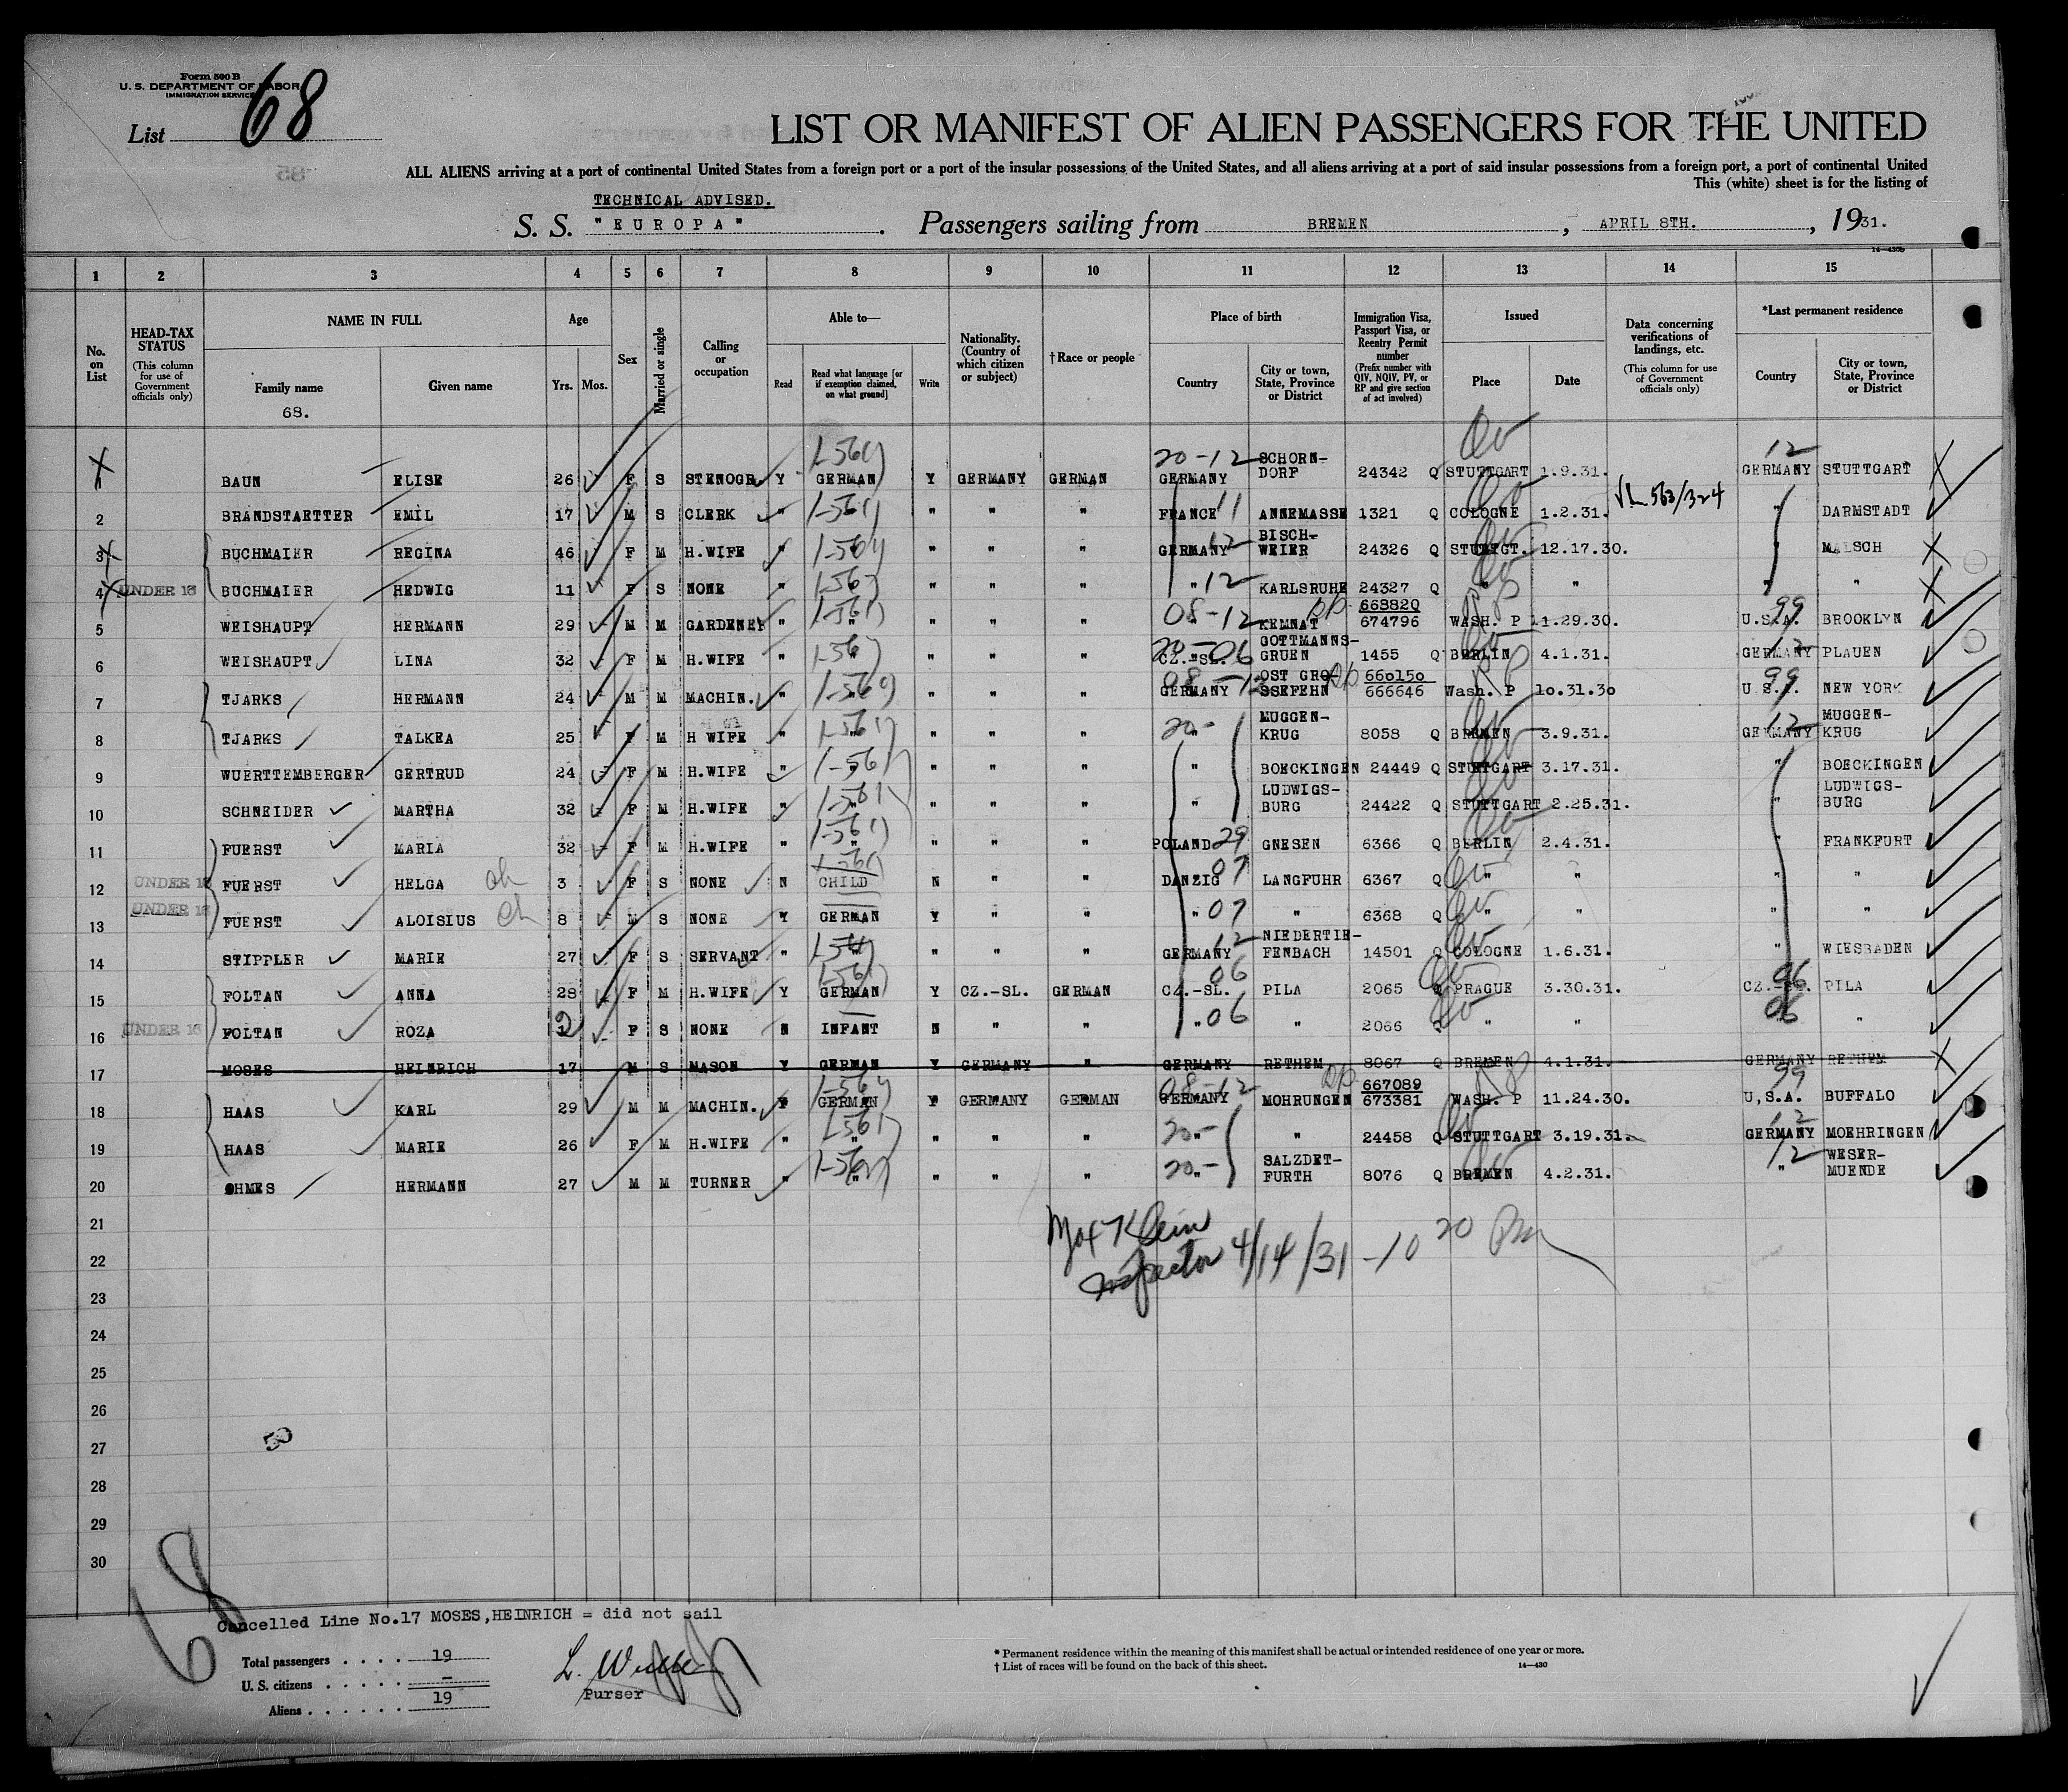 Form 500 B
U. S. DEPARTMENT OF LABOR
IMMIGRATION SERVICE
List 68
LIST OR MANIFEST OF ALIEN PASSENGERS FOR THE UNITED
ALL ALIENS arriving at a port of continental United States from a foreign port or a port of the insular possessions of the United States, and all aliens arriving at a port of said insular possessions from a foreign port, a port of continental United
This (white) sheet is for the listing of
TECHNICAL ADVISED.
S. S. "EUROPA". Passengers sailing from BREMEN, APRIL 8TH., 1931.
14-430b
1 2 3 4 5 6 7 8 9 10 11 12 13 14 15
No. on List
HEAD-TAX STATUS (This column for use of Government officials only)
NAME IN FULL
Family name
68.
Given name
Age
Yrs. Mos.
Sex
Married or single
Calling or occupation
Able to—
Read
Read what language [or if exemption claimed, on what ground]
Write
Nationality. (Country of which citizen or subject)
†Race or people
Place of birth
Country
City or town, State, Province or District
Immigration Visa, Passport Visa, or Reentry Permit number (Prefix number with QIV, NQIV, PV, or RP and give section of act involved)
Issued
Place
Date
Data concerning verifications of landings, etc. (This column for use of Government officials only)
*Last permanent residence
Country
City or town, State, Province or District
1 BAUN ELISE 26 F S STENOGR. Y GERMAN Y GERMANY GERMAN 20-12 GERMANY SCHORN-DORF 24342 Q STUTTGART 1.9.31. 12 GERMANY STUTTGART
2 BRANDSTAETTER EMIL 17 M S CLERK " " " " " FRANCE 11 ANNEMASSE 1321 Q COLOGNE 1.2.31. VL 563/324 " DARMSTADT
3 BUCHMAIER REGINA 46 F M H.WIFE " " " " " GERMANY 12 BISCH-WEIER 24326 Q STUTTGT. 12.17.30. " MALSCH
4 UNDER 16 BUCHMAIER HEDWIG 11 F S NONE " " " " " " 12 KARLSRUHE 24327 Q " " " "
5 WEISHAUPT HERMANN 29 M M GARDENER " " " " " 08-12 KEMNAT 668820 674796 WASH. P 11.29.30. 99 U.S.A. BROOKLYN
6 WEISHAUPT LINA 32 F M H.WIFE " " " " " 20-06 CZ.-SL. GOTTMANNS-GRUEN 1455 Q BERLIN 4.1.31. 12 GERMANY PLAUEN
7 TJARKS HERMANN 24 M M MACHIN. " " " " " 08-12 GERMANY OST GRO-SSEFEHN 660150 666646 Wash. P 10.31.30 99 U.S.A. NEW YORK
8 TJARKS TALKEA 25 F M H WIFE " " " " " 20- " MUGGEN-KRUG 8058 Q BREMEN 3.9.31. 12 GERMANY MUGGEN-KRUG
9 WUERTTEMBERGER GERTRUD 24 F M H.WIFE " " " " " " BOECKINGEN 24449 Q STUTTGART 3.17.31. " BOECKINGEN
10 SCHNEIDER MARTHA 32 F M H.WIFE " " " " " " LUDWIGS-BURG 24422 Q STUTTGART 2.25.31. " LUDWIGS-BURG
11 FUERST MARIA 32 F M H.WIFE " " " " " POLAND 29 GNESEN 6366 Q BERLIN 2.4.31. " FRANKFURT
12 UNDER 16 FUERST HELGA ch 3 F S NONE N CHILD N " " DANZIG 07 LANGFUHR 6367 Q " " " "
13 UNDER 16 FUERST ALOISIUS ch 8 M S NONE Y GERMAN Y " " " 07 " 6368 Q " " " "
14 STIPPLER MARIE 27 F S SERVANT " " " " " GERMANY 12 NIEDERTIE-FENBACH 14501 Q COLOGNE 1.6.31. " WIESBADEN
15 FOLTAN ANNA 28 F M H.WIFE Y GERMAN Y CZ.-SL. GERMAN CZ.-SL. 06 PILA 2065 Q PRAGUE 3.30.31. CZ.-SL. 06 PILA
16 UNDER 16 FOLTAN ROZA 2 F S NONE N INFANT N " " " 06 " 2066 Q " " 06 "
17 MOSES HEINRICH 17 M S MASON Y GERMAN Y GERMANY " GERMANY RETHEM 8067 Q BREMEN 4.1.31. GERMANY RETHEM
18 HAAS KARL 29 M M MACHIN. Y GERMAN Y GERMANY GERMAN 08-12 GERMANY MOHRUNGEN 667089 673381 WASH. P 11.24.30. 99 U,S.A. BUFFALO
19 HAAS MARIE 26 F M H.WIFE " " " " " 20- " 24458 Q STUTTGART 3.19.31. 12 GERMANY MOEHRINGEN
20 OHMES HERMANN 27 M M TURNER " " " " " 20- " SALZDET-FURTH 8076 Q BREMEN 4.2.31. 12 " WESER-MUENDE
21
Max Klein
22
Inspector 4/14/31 - 10 20 Pm
23
24
25
26
27
50
28
29
30
68
Cancelled Line No.17 MOSES,HEINRICH = did not sail
Total passengers . . . . 19
U. S. citizens . . . . . –
Aliens . . . . . . 19
Purser
* Permanent residence within the meaning of this manifest shall be actual or intended residence of one year or more.
† List of races will be found on the back of this sheet.
14—430